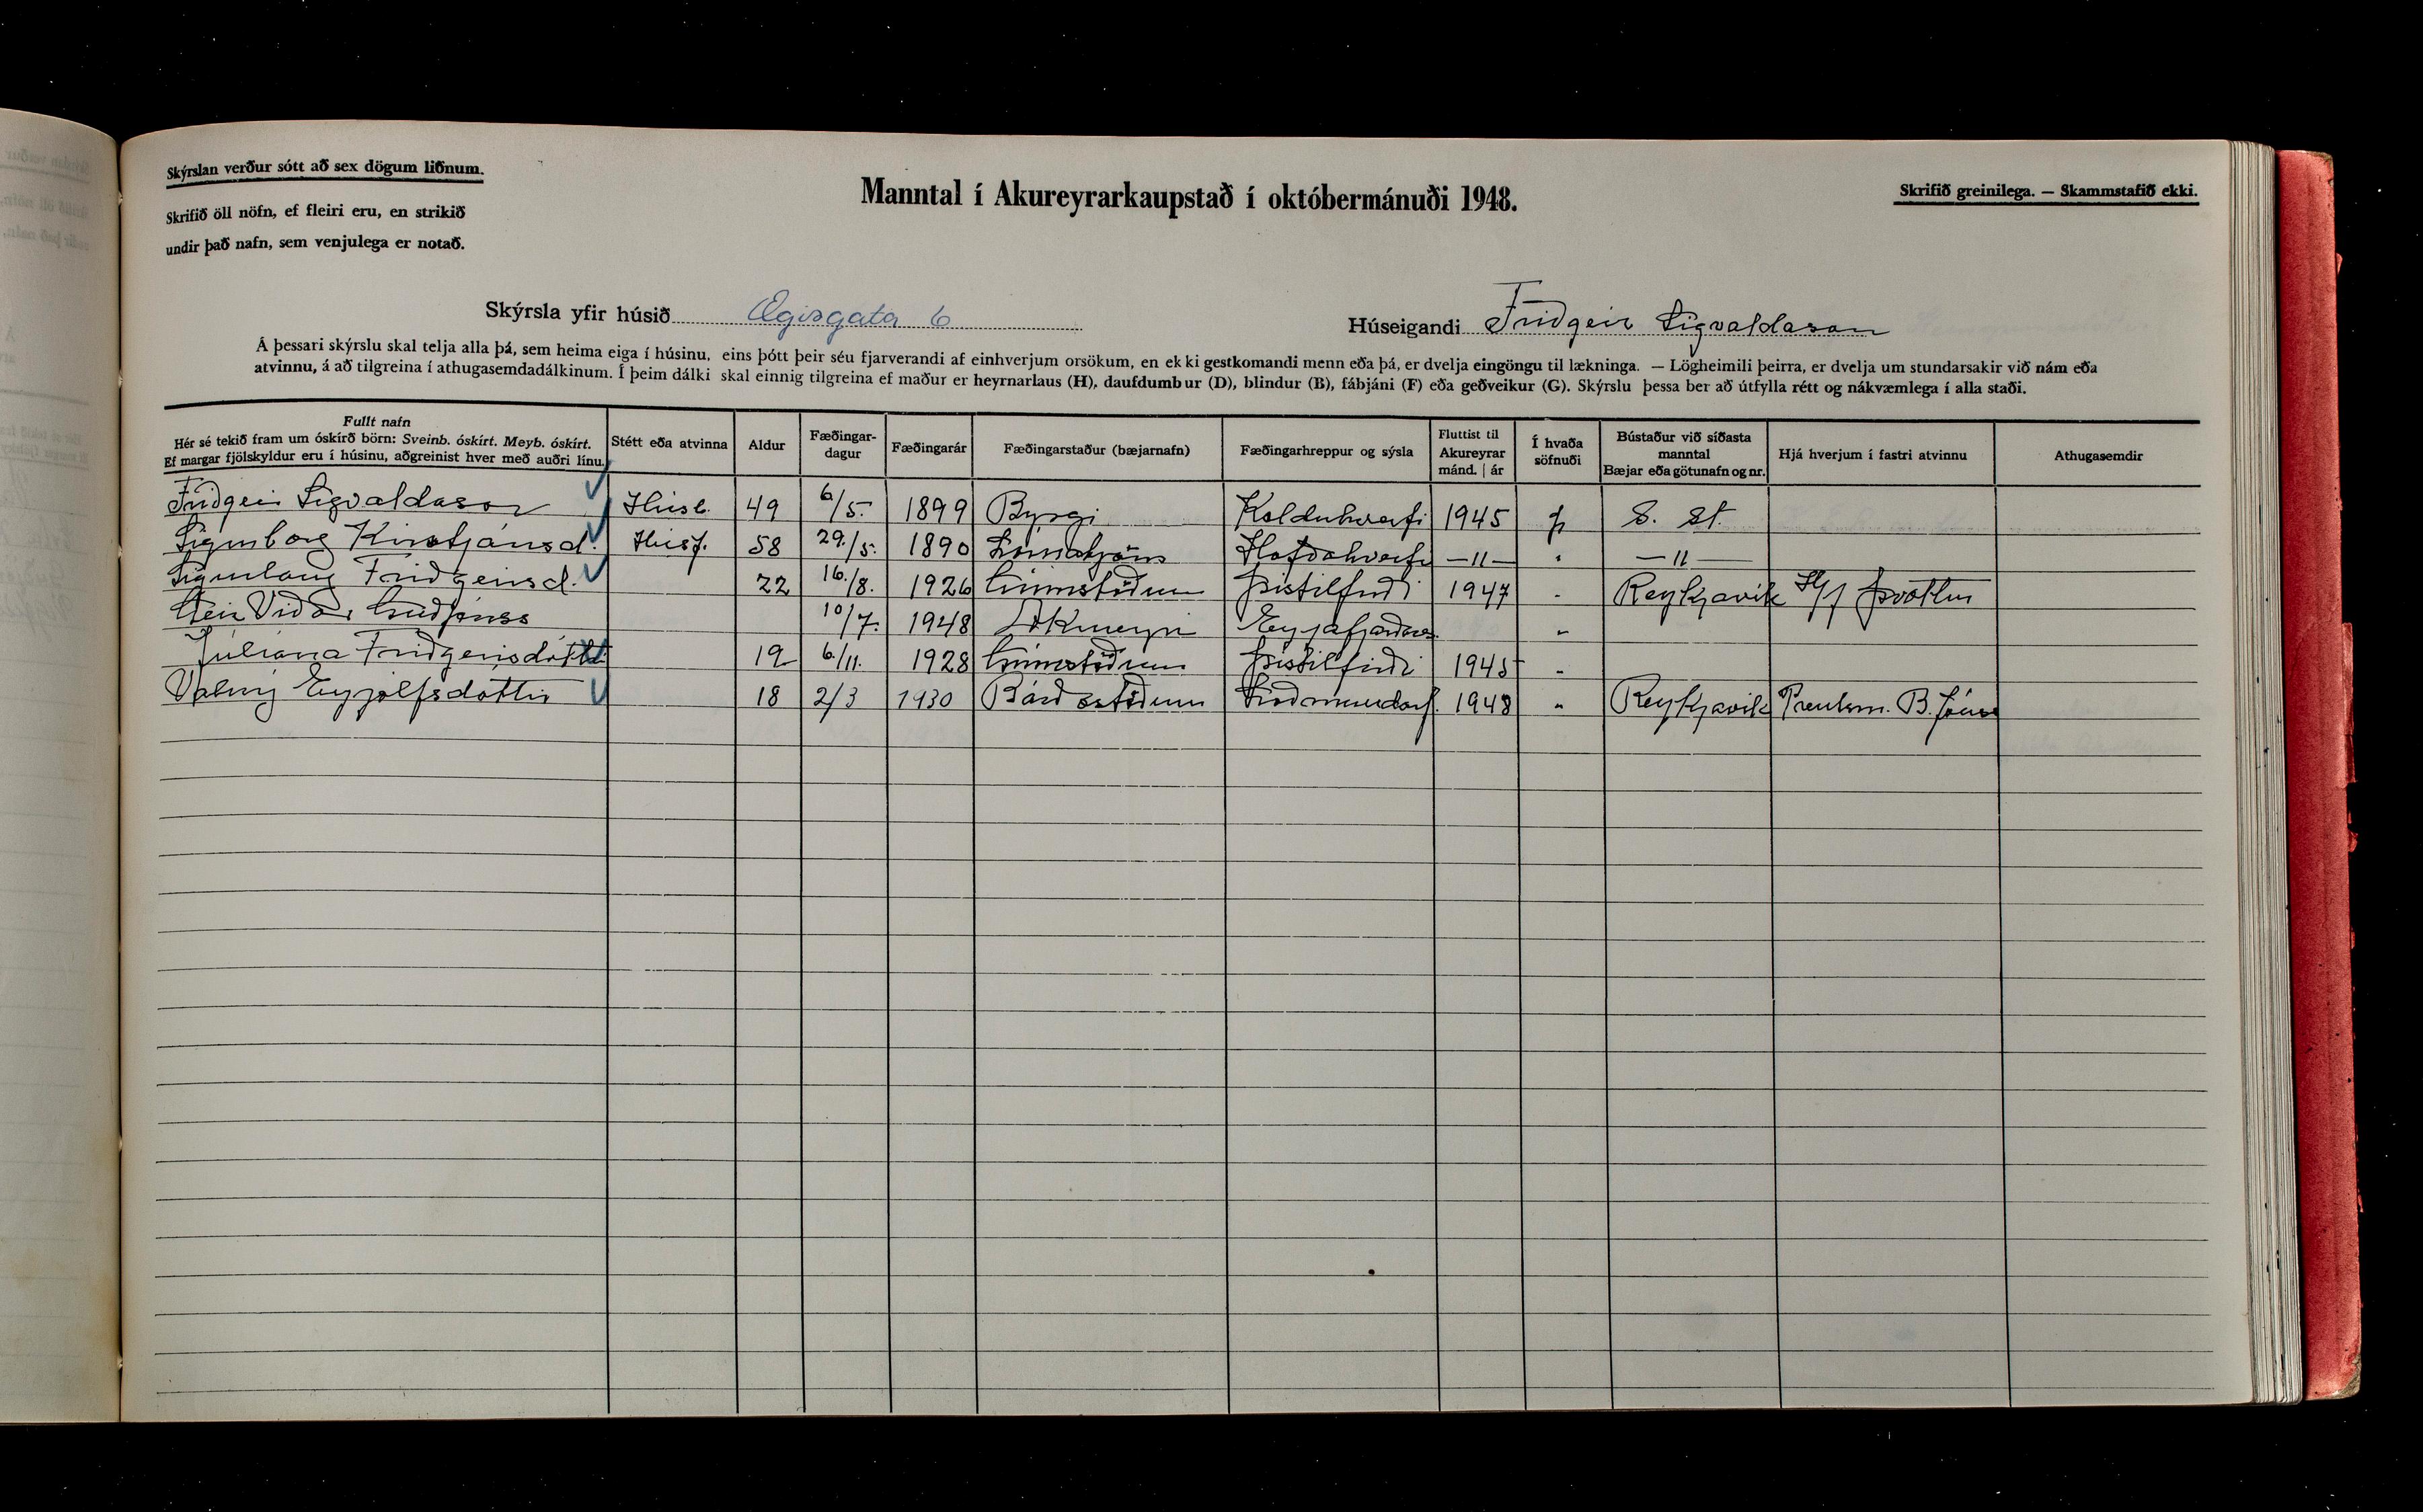 Skýrslan verður sótt að sex dögum liðnum.
Skrifið öll nöfn, ef fleiri eru, en strikið
undir það nafn, sem venjulega er notað.
Manntal í Akureyrarkaupstað í októbermánuði 1948.
Skrifið greinilega. — Skammstafið ekki.
Skýrsla yfir húsið Ægisgata 6
Húseigandi Fridgeir Sigvaldason
Á þessari skýrslu skal telja alla þá, sem heima eiga í húsinu, eins þótt þeir séu fjarverandi af einhverjum orsökum, en ekki gestkomandi menn eða þá, er dvelja eingöngu til lækninga. — Lögheimili þeirra, er dvelja um stundarsakir við nám eða
atvinnu, á að tilgreina í athugasemdadálkinum. Í þeim dálki skal einnig tilgreina ef maður er heyrnarlaus (H), daufdumbur (D), blindur (B), fábjáni (F) eða geðveikur (G). Skýrslu þessa ber að útfylla rétt og nákvæmlega í alla staði.
Fullt nafn
Hér sé tekið fram um óskírð börn: Sveinb. óskírt. Meyb. óskírt.
Ef margar fjölskyldur eru í húsinu, aðgreinist hver með auðri línu.
Stétt eða atvinna
Aldur
Fæðingar-
dagur
Fæðingarár
Fæðingarstaður (bæjarnafn)
Fæðingarhreppur og sýsla
Fluttist til
Akureyrar
mánd. | ár
Í hvaða
söfnuði
Bústaður við síðasta
manntal
Bæjar eða götunafn og nr.
Hjá hverjum í fastri atvinnu
Athugasemdir
Fridgeir Sigvaldason Húsb. 49 6/5. 1899 Byrgi Kelduhverfi 1945 þ S. St.
Sigurborg Kristjánsd. Húsf. 58 29./5. 1890 Höfdahverfi —11— " —11—
Sigurlaug Fridgeirsd. 22 16./8. 1926 Grímstödum Þistilfirdi 1947 " Reykjavik H/f
Geir Vidar Gudjónss 10/7. 1948 Akureyri Eyjafjardars. "
Júliana Fridgeirsdóttir 19 6/11. 1928 Grímstödum Þistilfirdi 1945 "
Valný Eyjólfsdóttir 18 2/3 1930 Bárdarstödum Lodmundarf. 1948 " Reykjavik Prentsm. B. Jónss